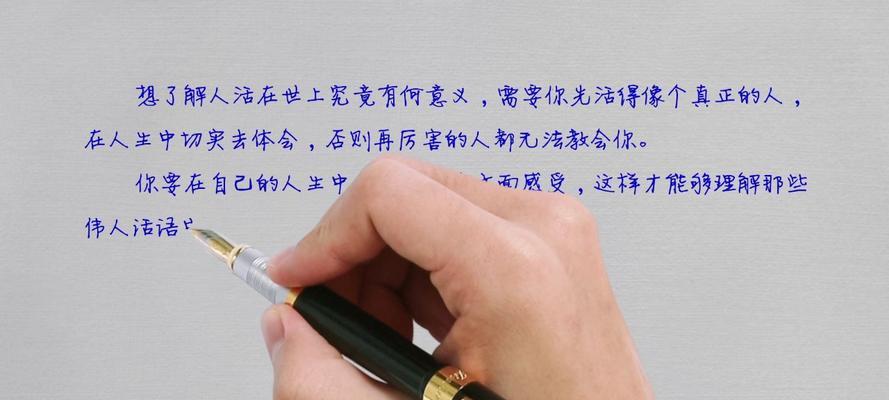 想了解人活在世上究竟有何意义，需要你先活得像个真正的人，
在人生中切实去体会，否则再厉害的人都无法教会你。
你要在自己的人生中 面感受，这样才能够理解那些
伟人话语